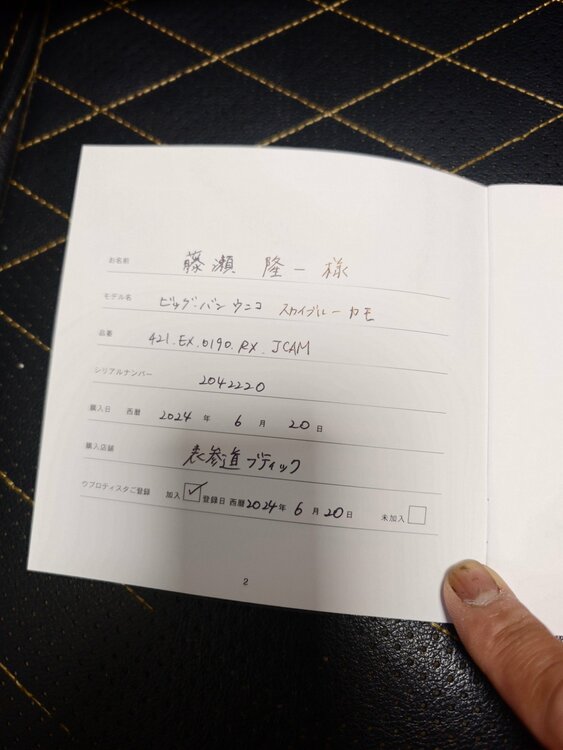 お名前 藤瀬 隆一 様
モデル名 ビッグ・バン ウニコ スカイブルー カモ
品番 421.EX.0190.RX.JCAM
シリアルナンバー 2042220
購入日 西暦 2024 年 6 月 20 日
購入店舗 表参道ブティック
ウブロティスタご登録 加入 ✓ 登録日 西暦 2024 年 6 月 20 日 未加入 □
2